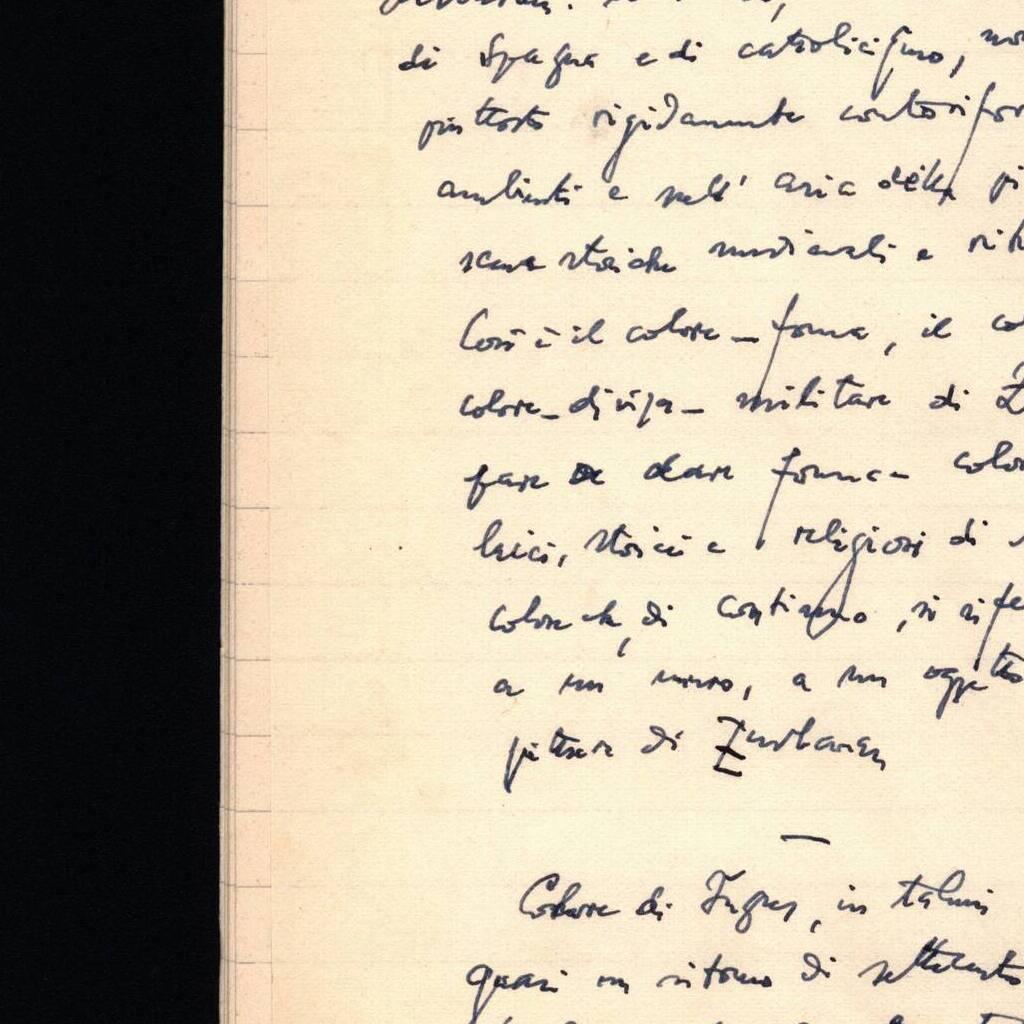 di Spagna e di cattolicismo, non
piuttosto rigidamente controrifor
ambienti e nell' aria della pi
scene storiche medievali e
Così è il colore-forma, il co
colore-divisa-militare di Z
fare dare forma- color
laici, storici e religiosi di
colore che, di continuo, si rife
a un muro, a un oggetto
pittura di Zurbaran
—
Colore di Ingres, in taluni
quasi un ritorno di settecento